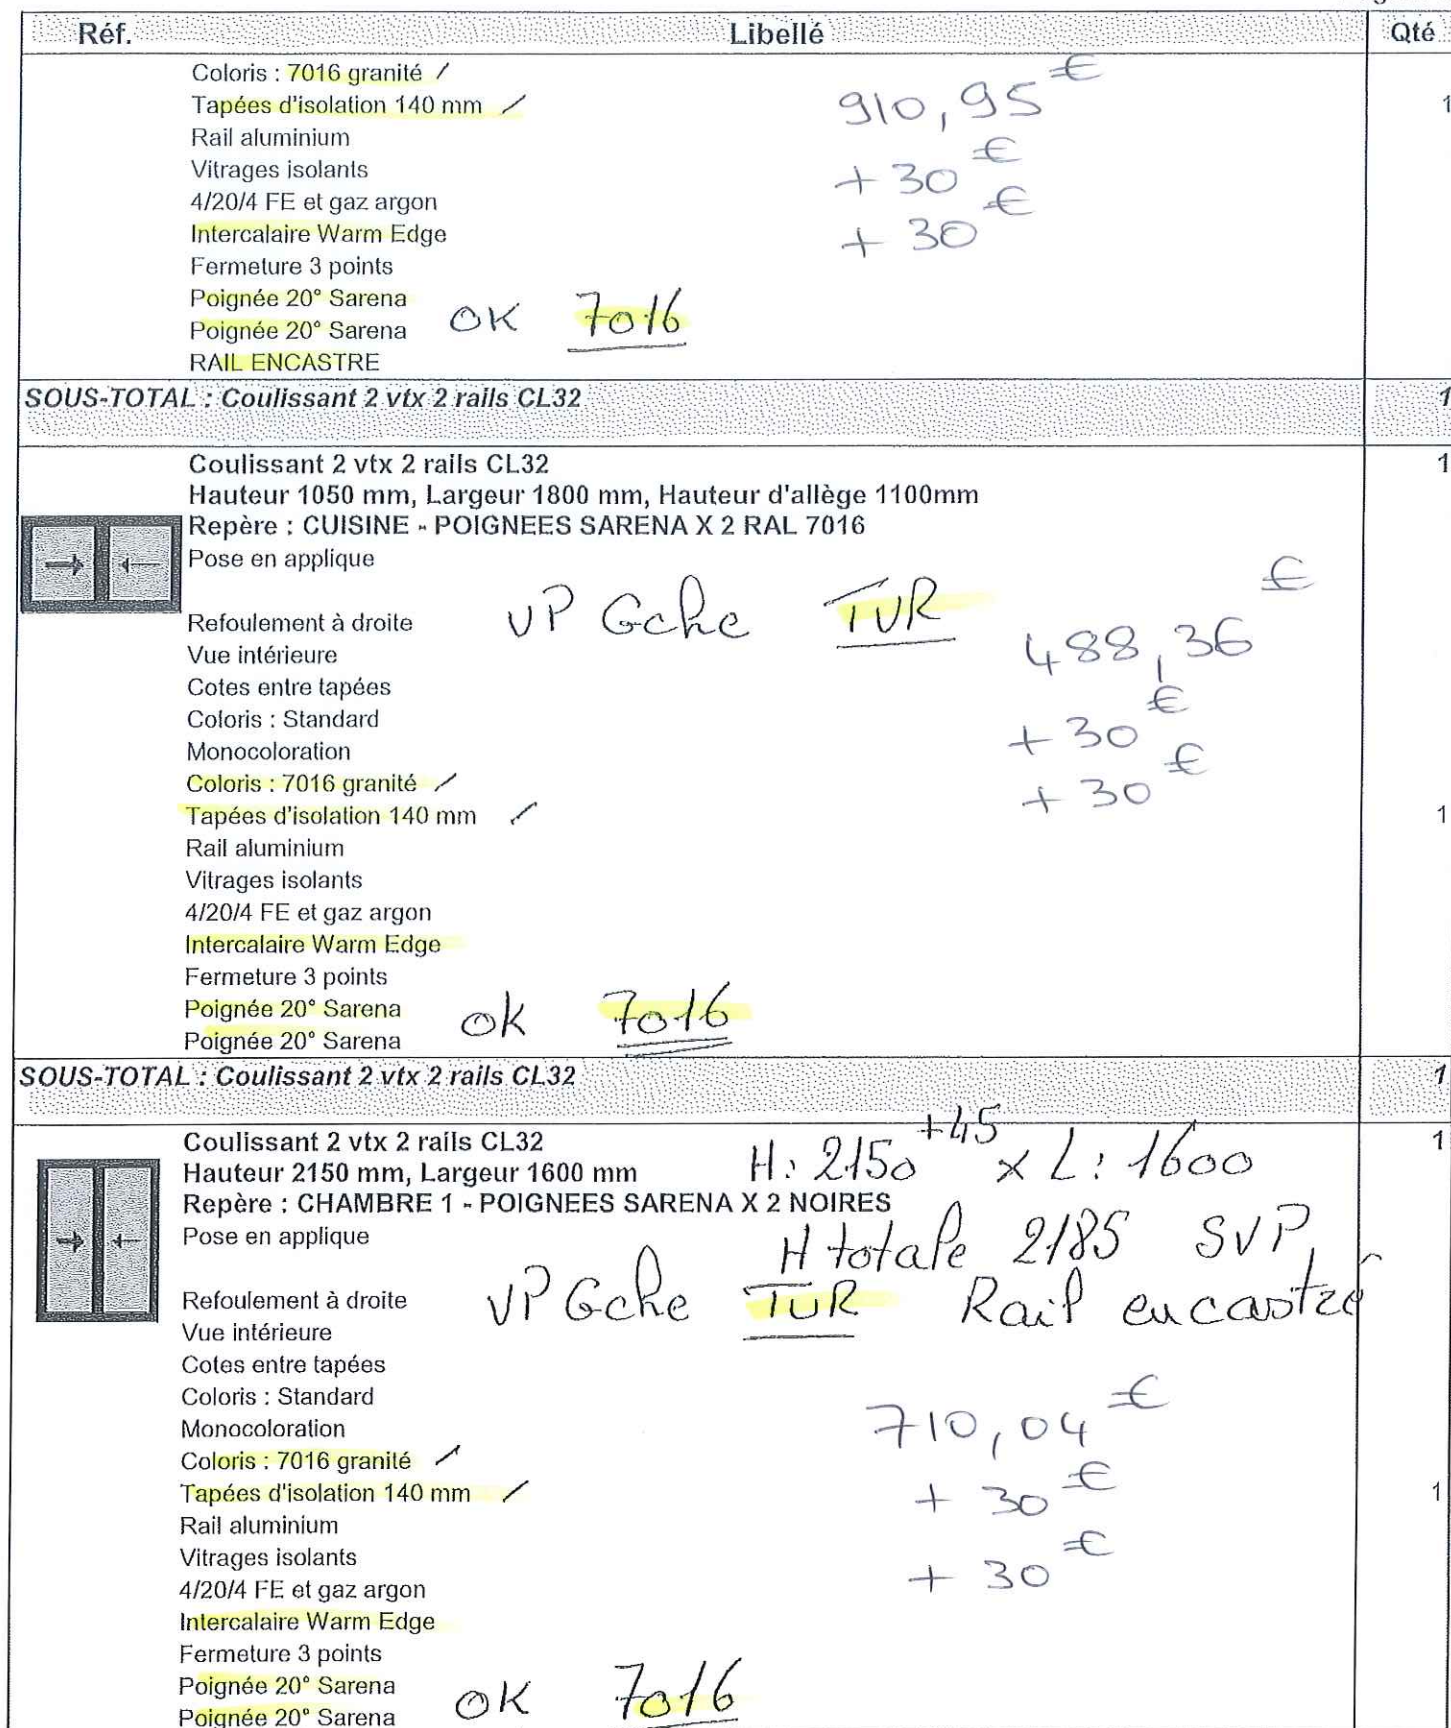 Réf. Libellé Qté
Coloris : 7016 granité /
Tapées d'isolation 140 mm / 910,95 € 1
Rail aluminium
Vitrages isolants + 30 €
4/20/4 FE et gaz argon
Intercalaire Warm Edge + 30 €
Fermeture 3 points
Poignée 20° Sarena
Poignée 20° Sarena OK 7016
RAIL ENCASTRE
SOUS-TOTAL : Coulissant 2 vtx 2 rails CL32 1
Coulissant 2 vtx 2 rails CL32 1
Hauteur 1050 mm, Largeur 1800 mm, Hauteur d'allège 1100mm
Repère : CUISINE - POIGNEES SARENA X 2 RAL 7016
Pose en applique
Refoulement à droite VP Gche TVR
Vue intérieure 488,36 €
Cotes entre tapées
Coloris : Standard
Monocoloration + 30 €
Coloris : 7016 granité /
Tapées d'isolation 140 mm / + 30 € 1
Rail aluminium
Vitrages isolants
4/20/4 FE et gaz argon
Intercalaire Warm Edge
Fermeture 3 points
Poignée 20° Sarena ok 7016
Poignée 20° Sarena
SOUS-TOTAL : Coulissant 2 vtx 2 rails CL32 1
Coulissant 2 vtx 2 rails CL32 1
Hauteur 2150 mm, Largeur 1600 mm H: 2150 +45 x L: 1600
Repère : CHAMBRE 1 - POIGNEES SARENA X 2 NOIRES
Pose en applique H totale 2185 SVP,
Refoulement à droite VP Gche TVR Rail encastré
Vue intérieure
Cotes entre tapées
Coloris : Standard
Monocoloration 710,04 €
Coloris : 7016 granité /
Tapées d'isolation 140 mm / + 30 € 1
Rail aluminium
Vitrages isolants
4/20/4 FE et gaz argon + 30 €
Intercalaire Warm Edge
Fermeture 3 points
Poignée 20° Sarena OK 7016
Poignée 20° Sarena